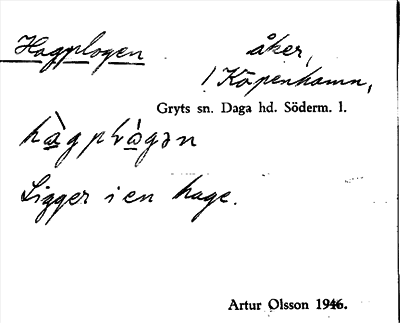 Hagplogen åker,
i Köpenhamn,
Gryts sn. Daga hd. Söderm. l.
Ligger i en hage.
Artur Olsson 1946.